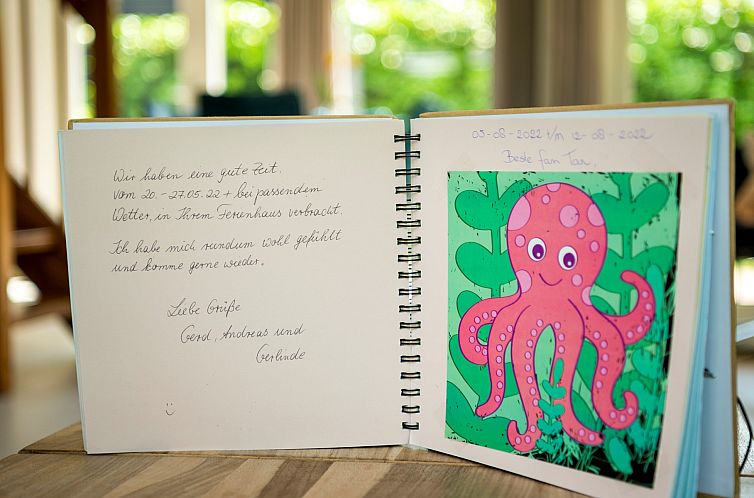 Wir haben eine gute Zeit.
vom 20. - 27.05.22 + bei passendem
Wetter, in Ihrem Ferienhaus verbracht.
Ich habe mich rundum wohl gefühlt
und komme gerne wieder.
Liebe Grüße
Gerd, Andreas und
Gerlinde
05-08-2022 t/m 12-08-2022
Beste fam Tax,